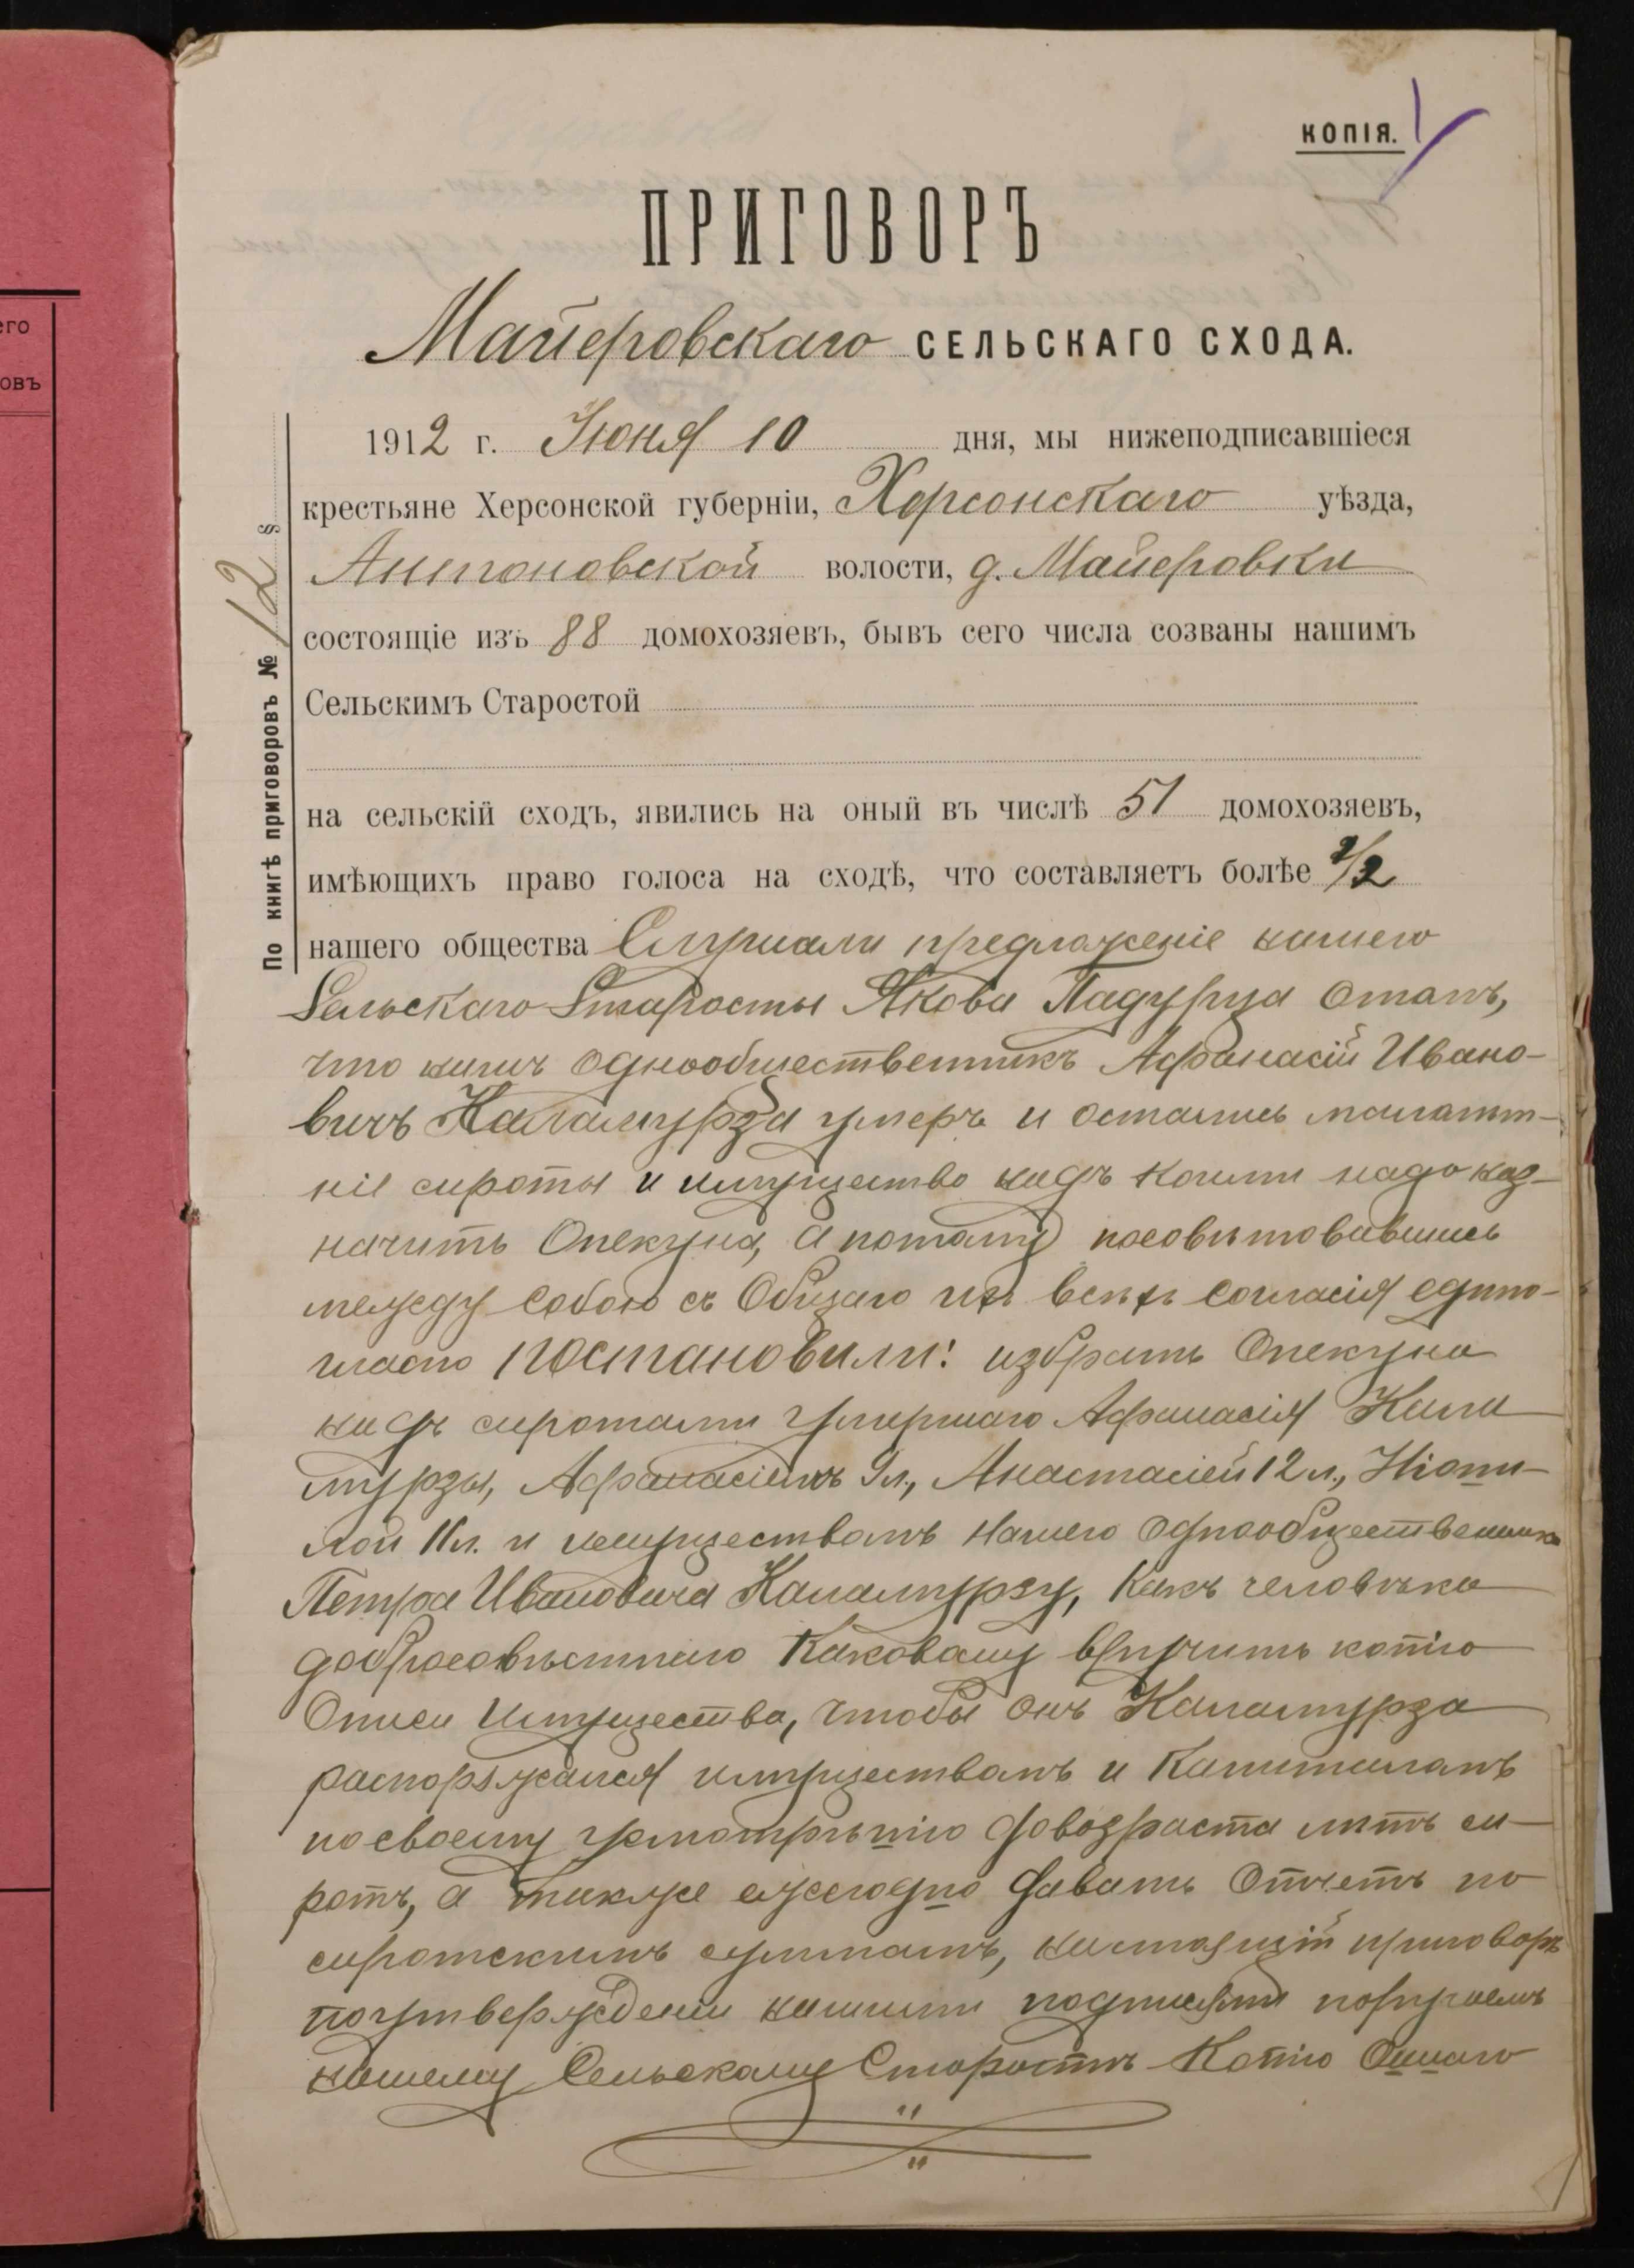 его
овъ
КОПІЯ.
ПРИГОВОРЪ
Майеровскаго СЕЛЬСКАГО СХОДА.
По книгѣ приговоровъ № 12 §
1912 г. Іюня 10 дня, мы нижеподписавшіеся
крестьяне Херсонской губерніи, Херсонскаго уѣзда,
Антоновской волости, д. Майеровки
состоящіе изъ 88 домохозяевъ, бывъ сего числа созваны нашимъ
Сельскимъ Старостой
на сельскій сходъ, явились на оный въ числѣ 51 домохозяевъ,
имѣющихъ право голоса на сходѣ, что составляетъ болѣе 1/2
нашего общества Слушали предложеніе нашего
Сельскаго Старосты Якова Падурца Отамъ,
что нашъ Однообщественникъ Афанасій Ивано-
вичъ Каламурза умеръ и остались малолѣт-
ніе сироты и имущество надъ коими надо наз-
начить Опекуна, а потому посовѣтовавшись
между собою съ Общаго ихъ всѣхъ согласія едино-
гласно постановили: избрать Опекуна
надъ сиротами умершаго Афанасія Кала
мурзы, Афанасіемъ 9 л., Анастасіей 12 л.,
11 л. и имуществомъ нашего Однообщественника
Петра Ивановича Каламурзу, какъ человѣка
добросовѣстнаго Каковому вручить копію
Описи имущества, чтобы онъ Каламурза
распоряжался имуществомъ и Капиталамъ
по своему усмотрѣнію до возраста лѣтъ си-
ротъ, а также ежегодно давать Отчетъ по
сиротскимъ суммамъ, настоящій приговоръ
по утвержденіи нашими подписями поручаемъ
нашему Сельскому Старостѣ Копію Онаго